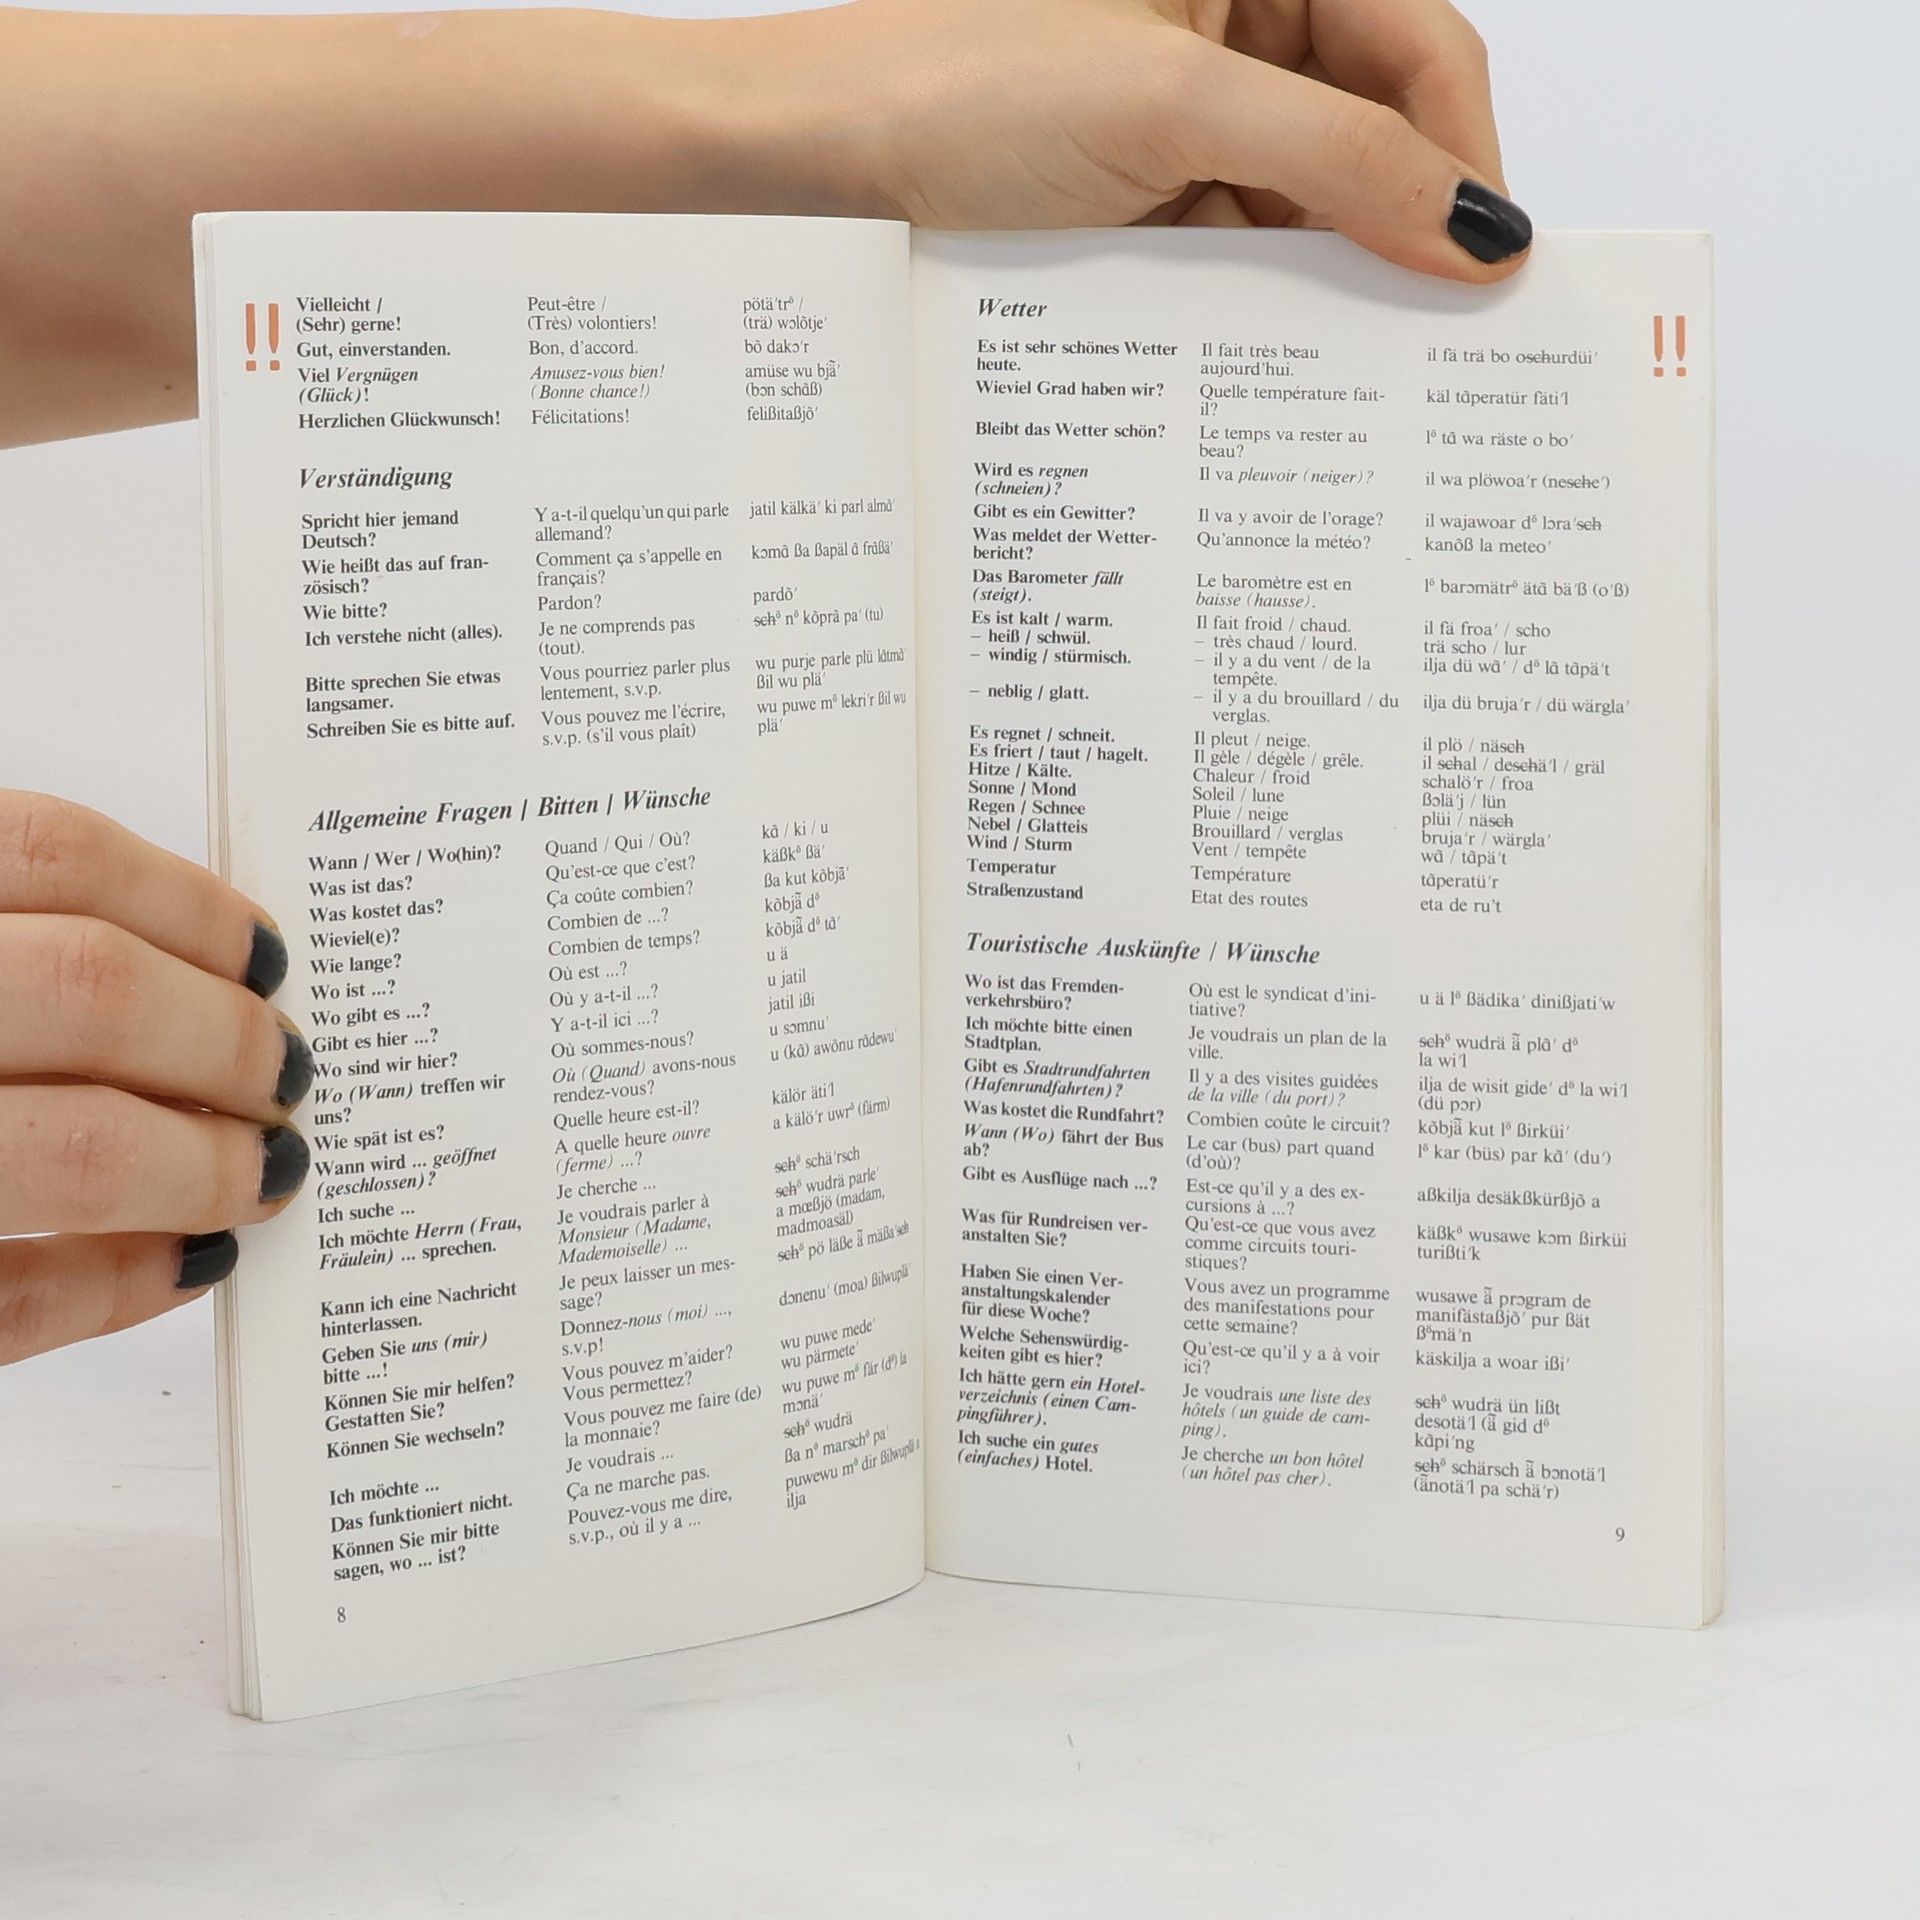 !!
Vielleicht / Peut-être / pötä′trᵒ̈ /
(Sehr) gerne! (Très) volontiers! (trä) wɔlõtje′
Gut, einverstanden. Bon, d’accord. bõ dakɔ′r
Viel Vergnügen Amusez-vous bien! amüse wu bjä̃′
(Glück)! (Bonne chance!) (bɔn schãß)
Herzlichen Glückwunsch! Félicitations! felißitaßjõ′
Verständigung
Spricht hier jemand Y a-t-il quelqu’un qui parle jatil kälkä′ ki parl almã′
Deutsch? allemand?
Wie heißt das auf fran- Comment ça s’appelle en kɔmã ßa ßapäl ã frãßä′
zösisch? français?
Wie bitte? Pardon? pardõ′
Ich verstehe nicht (alles). Je ne comprends pas s̶c̶h̶ᵒ̈ nᵒ̈ kõprã pa′ (tu)
(tout).
Bitte sprechen Sie etwas Vous pourriez parler plus wu purje parle plü lãtmã′
langsamer. lentement, s.v.p. ßil wu plä′
Schreiben Sie es bitte auf. Vous pouvez me l’écrire, wu puwe mᵒ̈ lekri′r ßil wu
s.v.p. (s’il vous plaît) plä′
Allgemeine Fragen / Bitten / Wünsche
Wann / Wer / Wo(hin)? Quand / Qui / Où? kã / ki / u
Was ist das? Qu’est-ce que c’est? käßkᵒ̈ ßä′
Was kostet das? Ça coûte combien? ßa kut kõbjä̃′
Wieviel(e)? Combien de ...? kõbjä̃ dᵒ̈
Wie lange? Combien de temps? kõbjä̃ dᵒ̈ tã′
Wo ist ...? Où est ...? u ä
Wo gibt es ...? Où y a-t-il ...? u jatil
Gibt es hier ...? Y a-t-il ici ...? jatil ißi
Wo sind wir hier? Où sommes-nous? u sɔmnu′
Wo (Wann) treffen wir Où (Quand) avons-nous u (kã) awõnu rãdewu′
uns? rendez-vous?
Wie spät ist es? Quelle heure est-il? kälör äti′l
Wann wird ... geöffnet A quelle heure ouvre a kälö′r uwrᵒ̈ (färm)
(geschlossen)? (ferme) ...?
Ich suche ... Je cherche ... s̶c̶h̶ᵒ̈ schä′rsch
Ich möchte Herrn (Frau, Je voudrais parler à s̶c̶h̶ᵒ̈ wudrä parle′
Fräulein) ... sprechen. Monsieur (Madame, a mœßjö (madam,
Mademoiselle) ... madmoasäl)
Kann ich eine Nachricht Je peux laisser un mes- s̶c̶h̶ᵒ̈ pö läße ä̃ mäßa′s̶c̶h̶
hinterlassen. sage?
Geben Sie uns (mir) Donnez-nous (moi) ..., dɔnenu′ (moa) ßilwuplä′
bitte ...! s.v.p!
Können Sie mir helfen? Vous pouvez m’aider? wu puwe mede′
Gestatten Sie? Vous permettez? wu pärmete′
Können Sie wechseln? Vous pouvez me faire (de) wu puwe mᵒ̈ fär (dᵒ̈) la
la monnaie? mɔnä′
Ich möchte ... Je voudrais ... s̶c̶h̶ᵒ̈ wudrä
Das funktioniert nicht. Ça ne marche pas. ßa nᵒ̈ marschᵒ̈ pa′
Können Sie mir bitte Pouvez-vous me dire, puwewu mᵒ̈ dir ßilwuplä
sagen, wo ... ist? s.v.p., où il y a ... ilja
8
!!
Wetter
Es ist sehr schönes Wetter Il fait très beau il fä trä bo os̶c̶h̶urdüi′
heute. aujourd’hui.
Wieviel Grad haben wir? Quelle température fait- käl tãperatür fäti′l
il?
Bleibt das Wetter schön? Le temps va rester au lᵒ̈ tã wa räste o bo′
beau?
Wird es regnen Il va pleuvoir (neiger)? il wa plöwoa′r (nes̶c̶h̶e′)
(schneien)?
Gibt es ein Gewitter? Il va y avoir de l’orage? il wajawoar dᵒ̈ lɔra′s̶c̶h̶
Was meldet der Wetter- Qu’annonce la météo? kanõß la meteo′
bericht?
Das Barometer fällt Le baromètre est en lᵒ̈ barɔmätrᵒ̈ ätã bä′ß (o′ß)
(steigt). baisse (hausse).
Es ist kalt / warm. Il fait froid / chaud. il fä froa′ / scho
– heiß / schwül. – très chaud / lourd. trä scho / lur
– windig / stürmisch. – il y a du vent / de la ilja dü wã′ / dᵒ̈ lã tãpä′t
tempête.
– neblig / glatt. – il y a du brouillard / du ilja dü bruja′r / dü wärgla′
verglas.
Es regnet / schneit. Il pleut / neige. il plö / näs̶c̶h̶
Es friert / taut / hagelt. Il gèle / dégèle / grêle. il s̶c̶h̶al / des̶c̶h̶ä′l / gräl
Hitze / Kälte. Chaleur / froid schalö′r / froa
Sonne / Mond Soleil / lune ßɔlä′j / lün
Regen / Schnee Pluie / neige plüi / näs̶c̶h̶
Nebel / Glatteis Brouillard / verglas bruja′r / wärgla′
Wind / Sturm Vent / tempête wã / tãpä′t
Temperatur Température tãperatü′r
Straßenzustand Etat des routes eta de ru′t
Touristische Auskünfte / Wünsche
Wo ist das Fremden- Où est le syndicat d’ini- u ä lᵒ̈ ßädika′ dinißjati′w
verkehrsbüro? tiative?
Ich möchte bitte einen Je voudrais un plan de la s̶c̶h̶ᵒ̈ wudrä ä̃ plã′ dᵒ̈
Stadtplan. ville. la wi′l
Gibt es Stadtrundfahrten Il y a des visites guidées ilja de wisit gide′ dᵒ̈ la wi′l
(Hafenrundfahrten)? de la ville (du port)? (dü pɔr)
Was kostet die Rundfahrt? Combien coûte le circuit? kõbjä̃ kut lᵒ̈ ßirküi′
Wann (Wo) fährt der Bus Le car (bus) part quand lᵒ̈ kar (büs) par kã′ (du′)
ab? (d’où)?
Gibt es Ausflüge nach ...? Est-ce qu’il y a des ex- aßkilja desäkßkürßjõ a
cursions à ...?
Was für Rundreisen ver- Qu’est-ce que vous avez käßkᵒ̈ wusawe kɔm ßirküi
anstalten Sie? comme circuits touri- turißti′k
stiques?
Haben Sie einen Ver- Vous avez un programme wusawe ä̃ prɔgram de
anstaltungskalender des manifestations pour manifästaßjõ′ pur ßät
für diese Woche? cette semaine? ßᵒ̈mä′n
Welche Sehenswürdig- Qu’est-ce qu’il y a à voir käskilja a woar ißi′
keiten gibt es hier? ici?
Ich hätte gern ein Hotel- Je voudrais une liste des s̶c̶h̶ᵒ̈ wudrä ün lißt
verzeichnis (einen Cam- hôtels (un guide de cam- desotä′l (ä̃ gid dᵒ̈
pingführer). ping). kãpi′ng
Ich suche ein gutes Je cherche un bon hôtel s̶c̶h̶ᵒ̈ schärsch ä̃ bɔnotä′l
(einfaches) Hotel. (un hôtel pas cher). (ä̃notä′l pa schä′r)
9